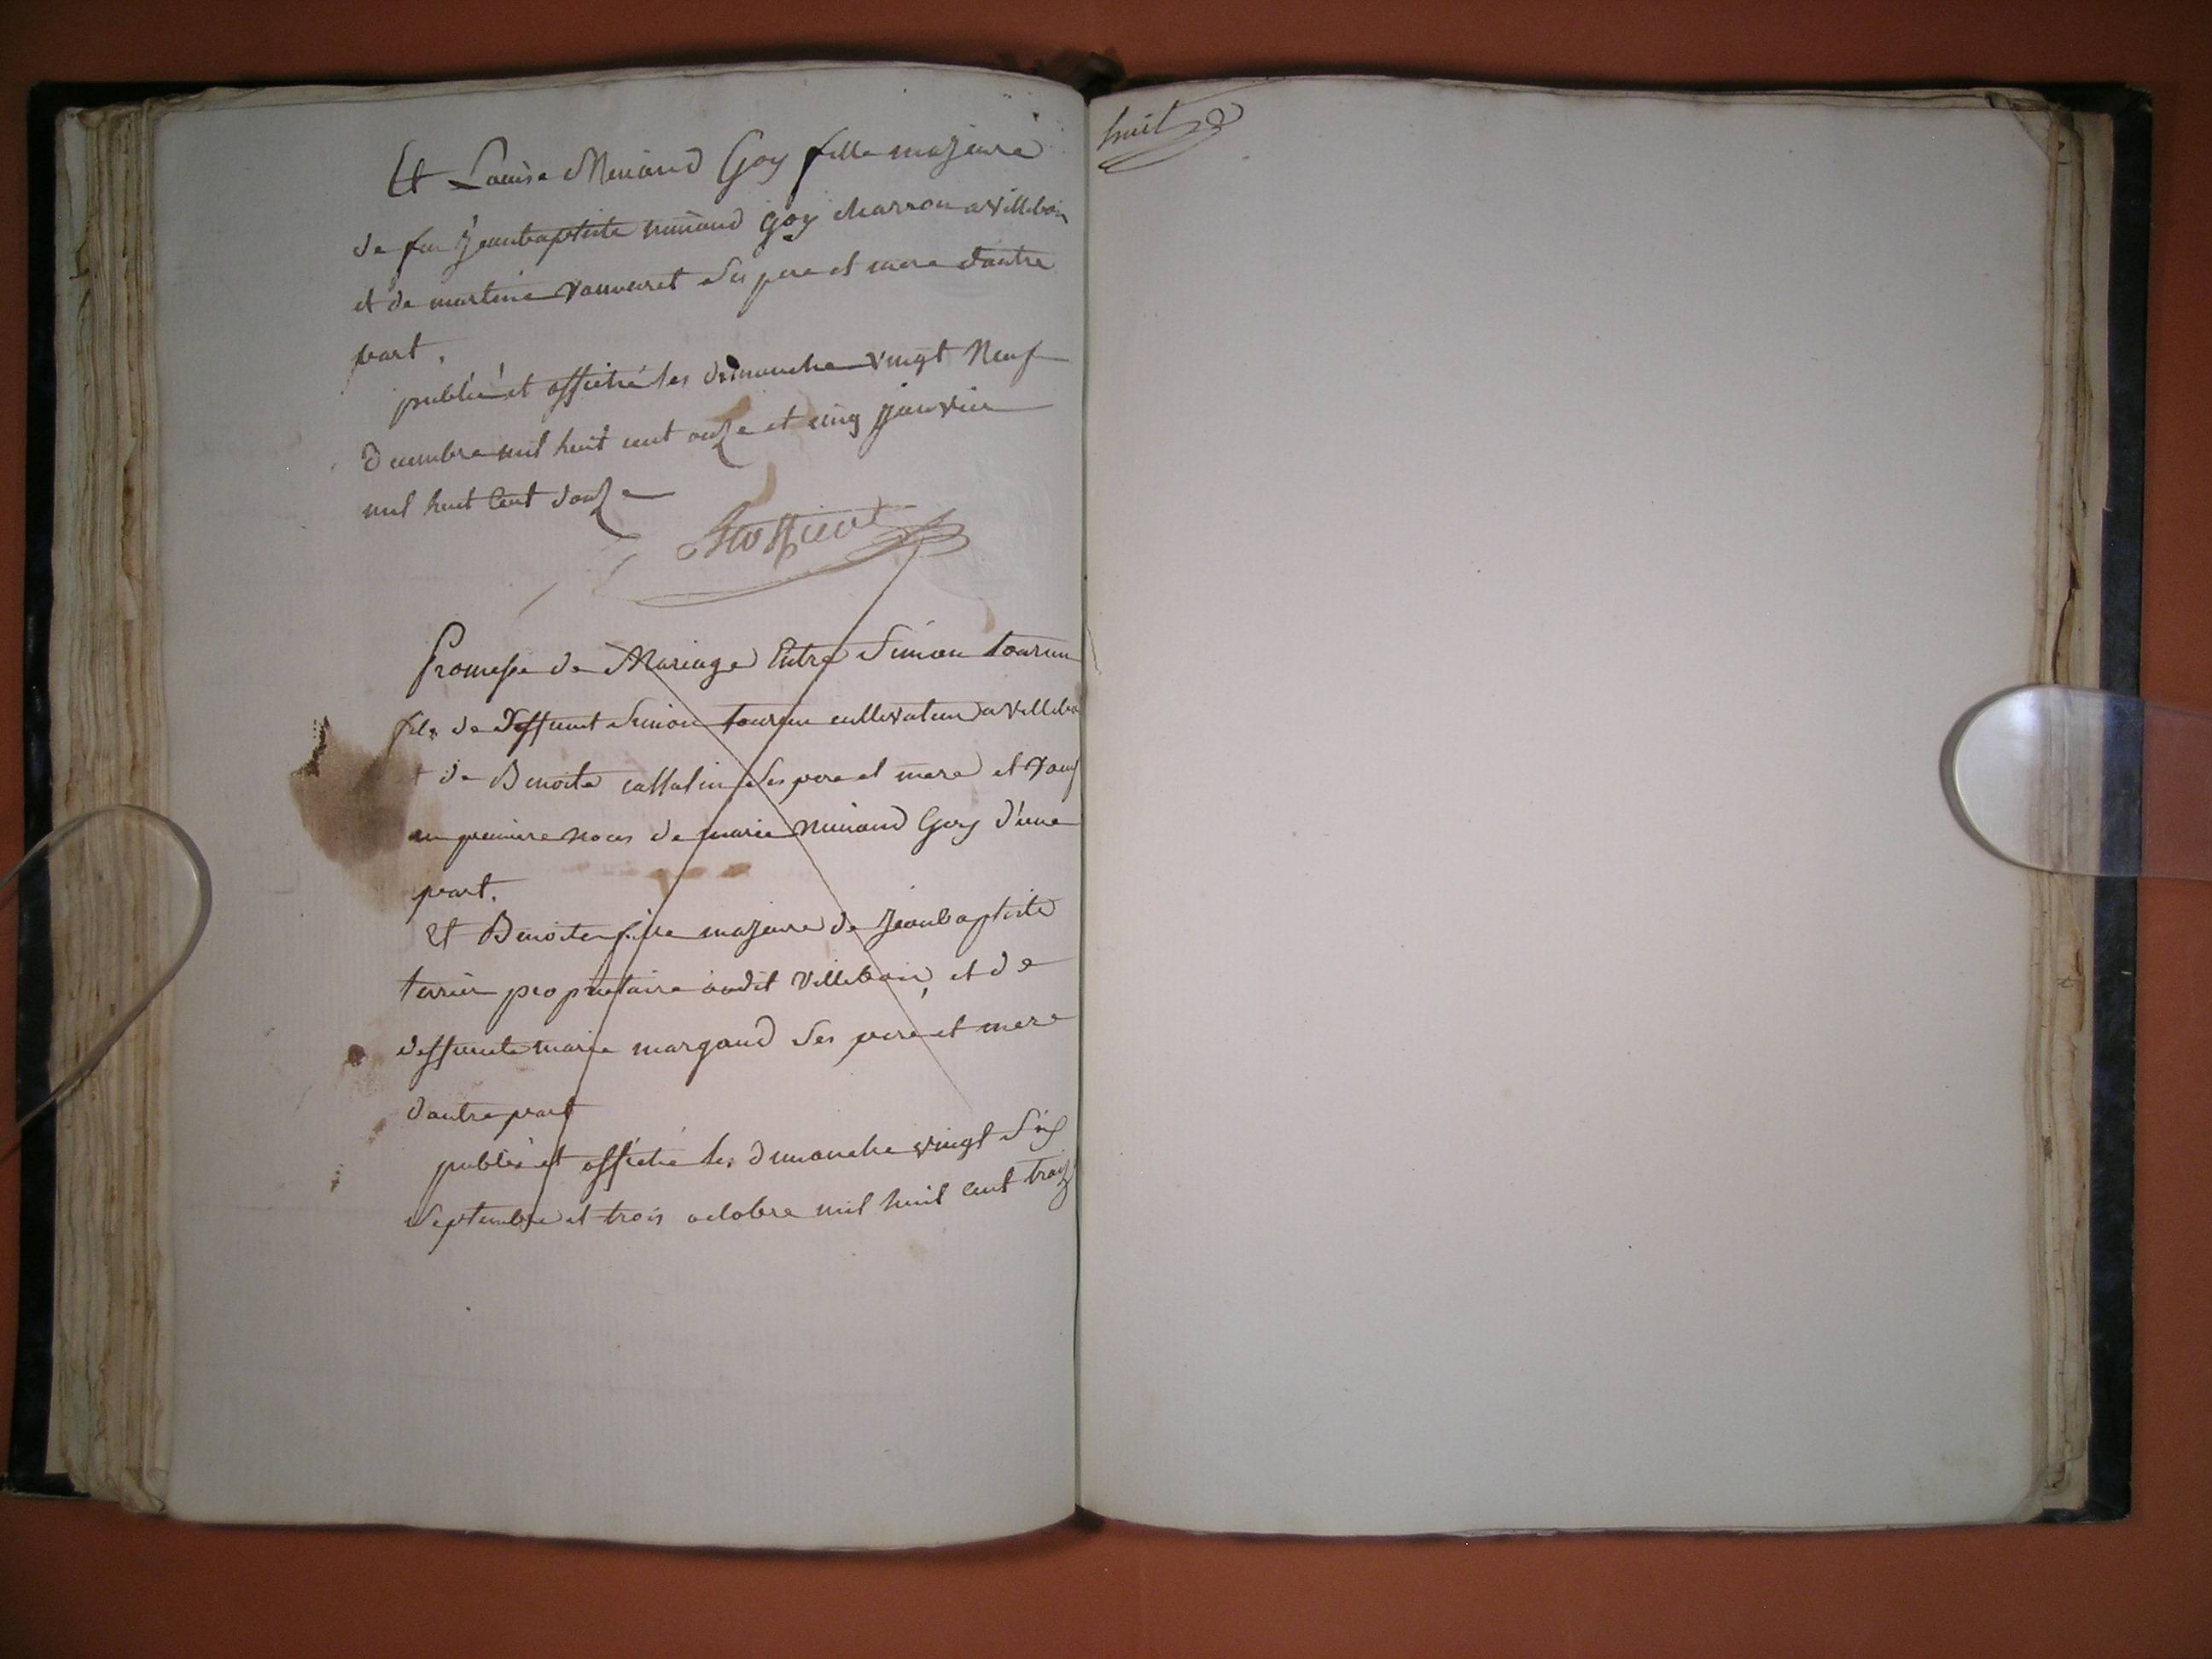 Et Louise Minand Goy fille majeure
de feu Jeanbaptiste minand Goy charron a villebois
et de martine vauveret ses pere et mere d'autre
part.
publié et affiché les dimanche vingt neuf
decembre mil huit cent onze et cinq janvier
mil huit Cent douze
Promesse de Mariage Entre Simon
fils de deffunt Simon cultivateur a villebois
de Benoite ses pere et mere et veuf
en premiere noces de marie minand Goy d'une
part.
Et Benoite fille majeure de Jeanbaptiste
terrier proprietaire audit Villebois, et de
deffunte marie margand ses pere et mere
d'autre part
publié et affiché les dimanche vingt six
Septembre et trois octobre mil huit cent treize
huit